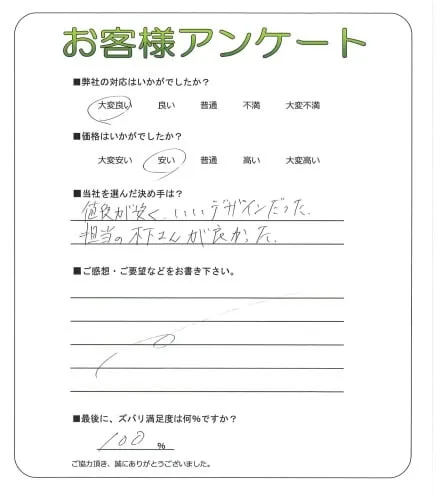 お客様アンケート
■弊社の対応はいかがでしたか？
大変良い 良い 普通 不満 大変不満
■価格はいかがでしたか？
大変安い 安い 普通 高い 大変高い
■当社を選んだ決め手は？
値段が安く、いいデザインだった。
担当の木下さんが良かった。
■ご感想・ご要望などをお書き下さい。
■最後に、ズバリ満足度は何％ですか？
100 %
ご協力頂き、誠にありがとうございました。